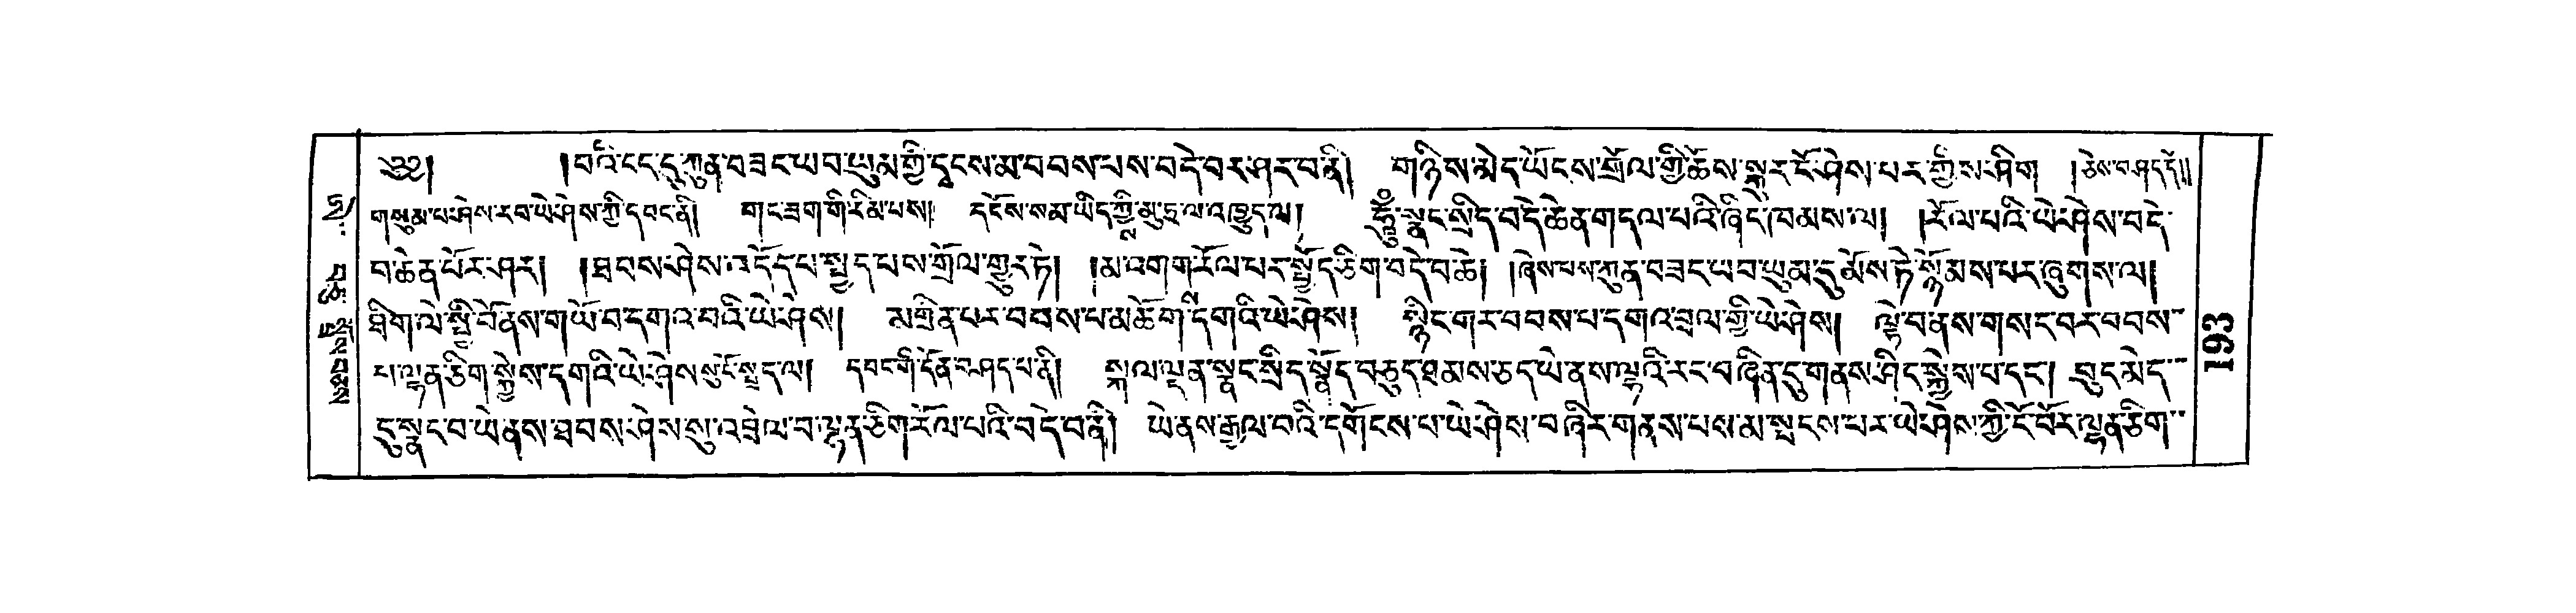 ༄༅། །བའི་ངང་དུ་ཀུན་བཟང་ཡབ་ཡུམ་གྱི་དྭངས་མ་བབས་པས་བདེ་བར་ཤར་བ་ནི། གཉིས་མེད་ཡོངས་གྲོལ་གྱི་ཆོས་སྐུར་ངོ་ཤེས་པར་གྱིས་ཤིག །ཅེས་བཤད་དོ།།
གསུམ་པ་ཤེས་རབ་ཡེ་ཤེས་ཀྱི་དབང་ནི། གང་ཟག་གི་རིམ་པས། དངོས་སམ་ཡིད་ཀྱི་མུ་དྲ་ལ་འཁྱུད་ལ། ཧཱུྃ་སྣང་སྲིད་བདེ་ཆེན་གདལ་པའི་ཞིང་ཁམས་ལ། །རོལ་པའི་ཡེ་ཤེས་བདེ་
བ་ཆེན་པོར་ཤར། །ཐབས་ཤེས་འདོད་པ་སྤྱད་པས་གྲོལ་གྱུར་ཏེ། །མ་འགག་རོལ་པར་སྤྱོད་ཅིག་བདེ་བ་ཆེ། །ཞེས་པས་ཀུན་བཟང་ཡབ་ཡུམ་དུ་མོས་ཏེ་སྙོམས་པར་ཞུགས་ལ།
ཐིག་ལེ་སྤྱི་བོ་ནས་གཡོ་བ་དགའ་བའི་ཡེ་ཤེས། མགྲིན་པར་བབས་པ་མཆོག་དགའི་ཡེ་ཤེས། སྙིང་གར་བབས་པ་དགའ་བྲལ་གྱི་ཡེ་ཤེས། ལྟེ་བ་ནས་གསང་བར་བབས་
པ་ལྷན་ཅིག་སྐྱེས་དགའི་ཡེ་ཤེས་སུ་ངོ་སྤྲད་ལ། དབང་གི་དོན་བཤད་པ་ནི། སྐལ་ལྡན་སྣང་སྲིད་སྣོད་བཅུད་ཐམས་ཅད་ཡེ་ནས་ལྷའི་རང་བཞིན་དུ་གནས་ཤིང་སྐྱེས་པ་དང་། བུད་མེད་
དུ་སྣང་བ་ཡེ་ནས་ཐབས་ཤེས་སུ་འབྲེལ་བ་ལྷན་ཅིག་རོལ་པའི་བདེ་བ་ནི། ཡེ་ནས་རྒྱལ་བའི་དགོངས་པ་ཡེ་ཤེས་བཞིར་གནས་པས་མ་སྤངས་པར་ཡེ་ཤེས་ཀྱི་ངོ་བོར་ལྷན་ཅིག་